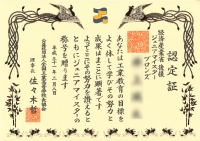 認定証
経済産業省 後援
ジュニアマイスター
ブロンズ
あなたは工業教育の目標を
よく体して学びその努力と
成果はまことに顕著です
よってここにその努力を讃えると
ともにジュニアマイスターの
称号を贈ります
平成三十一年二月八日
理事長 佐々木哲